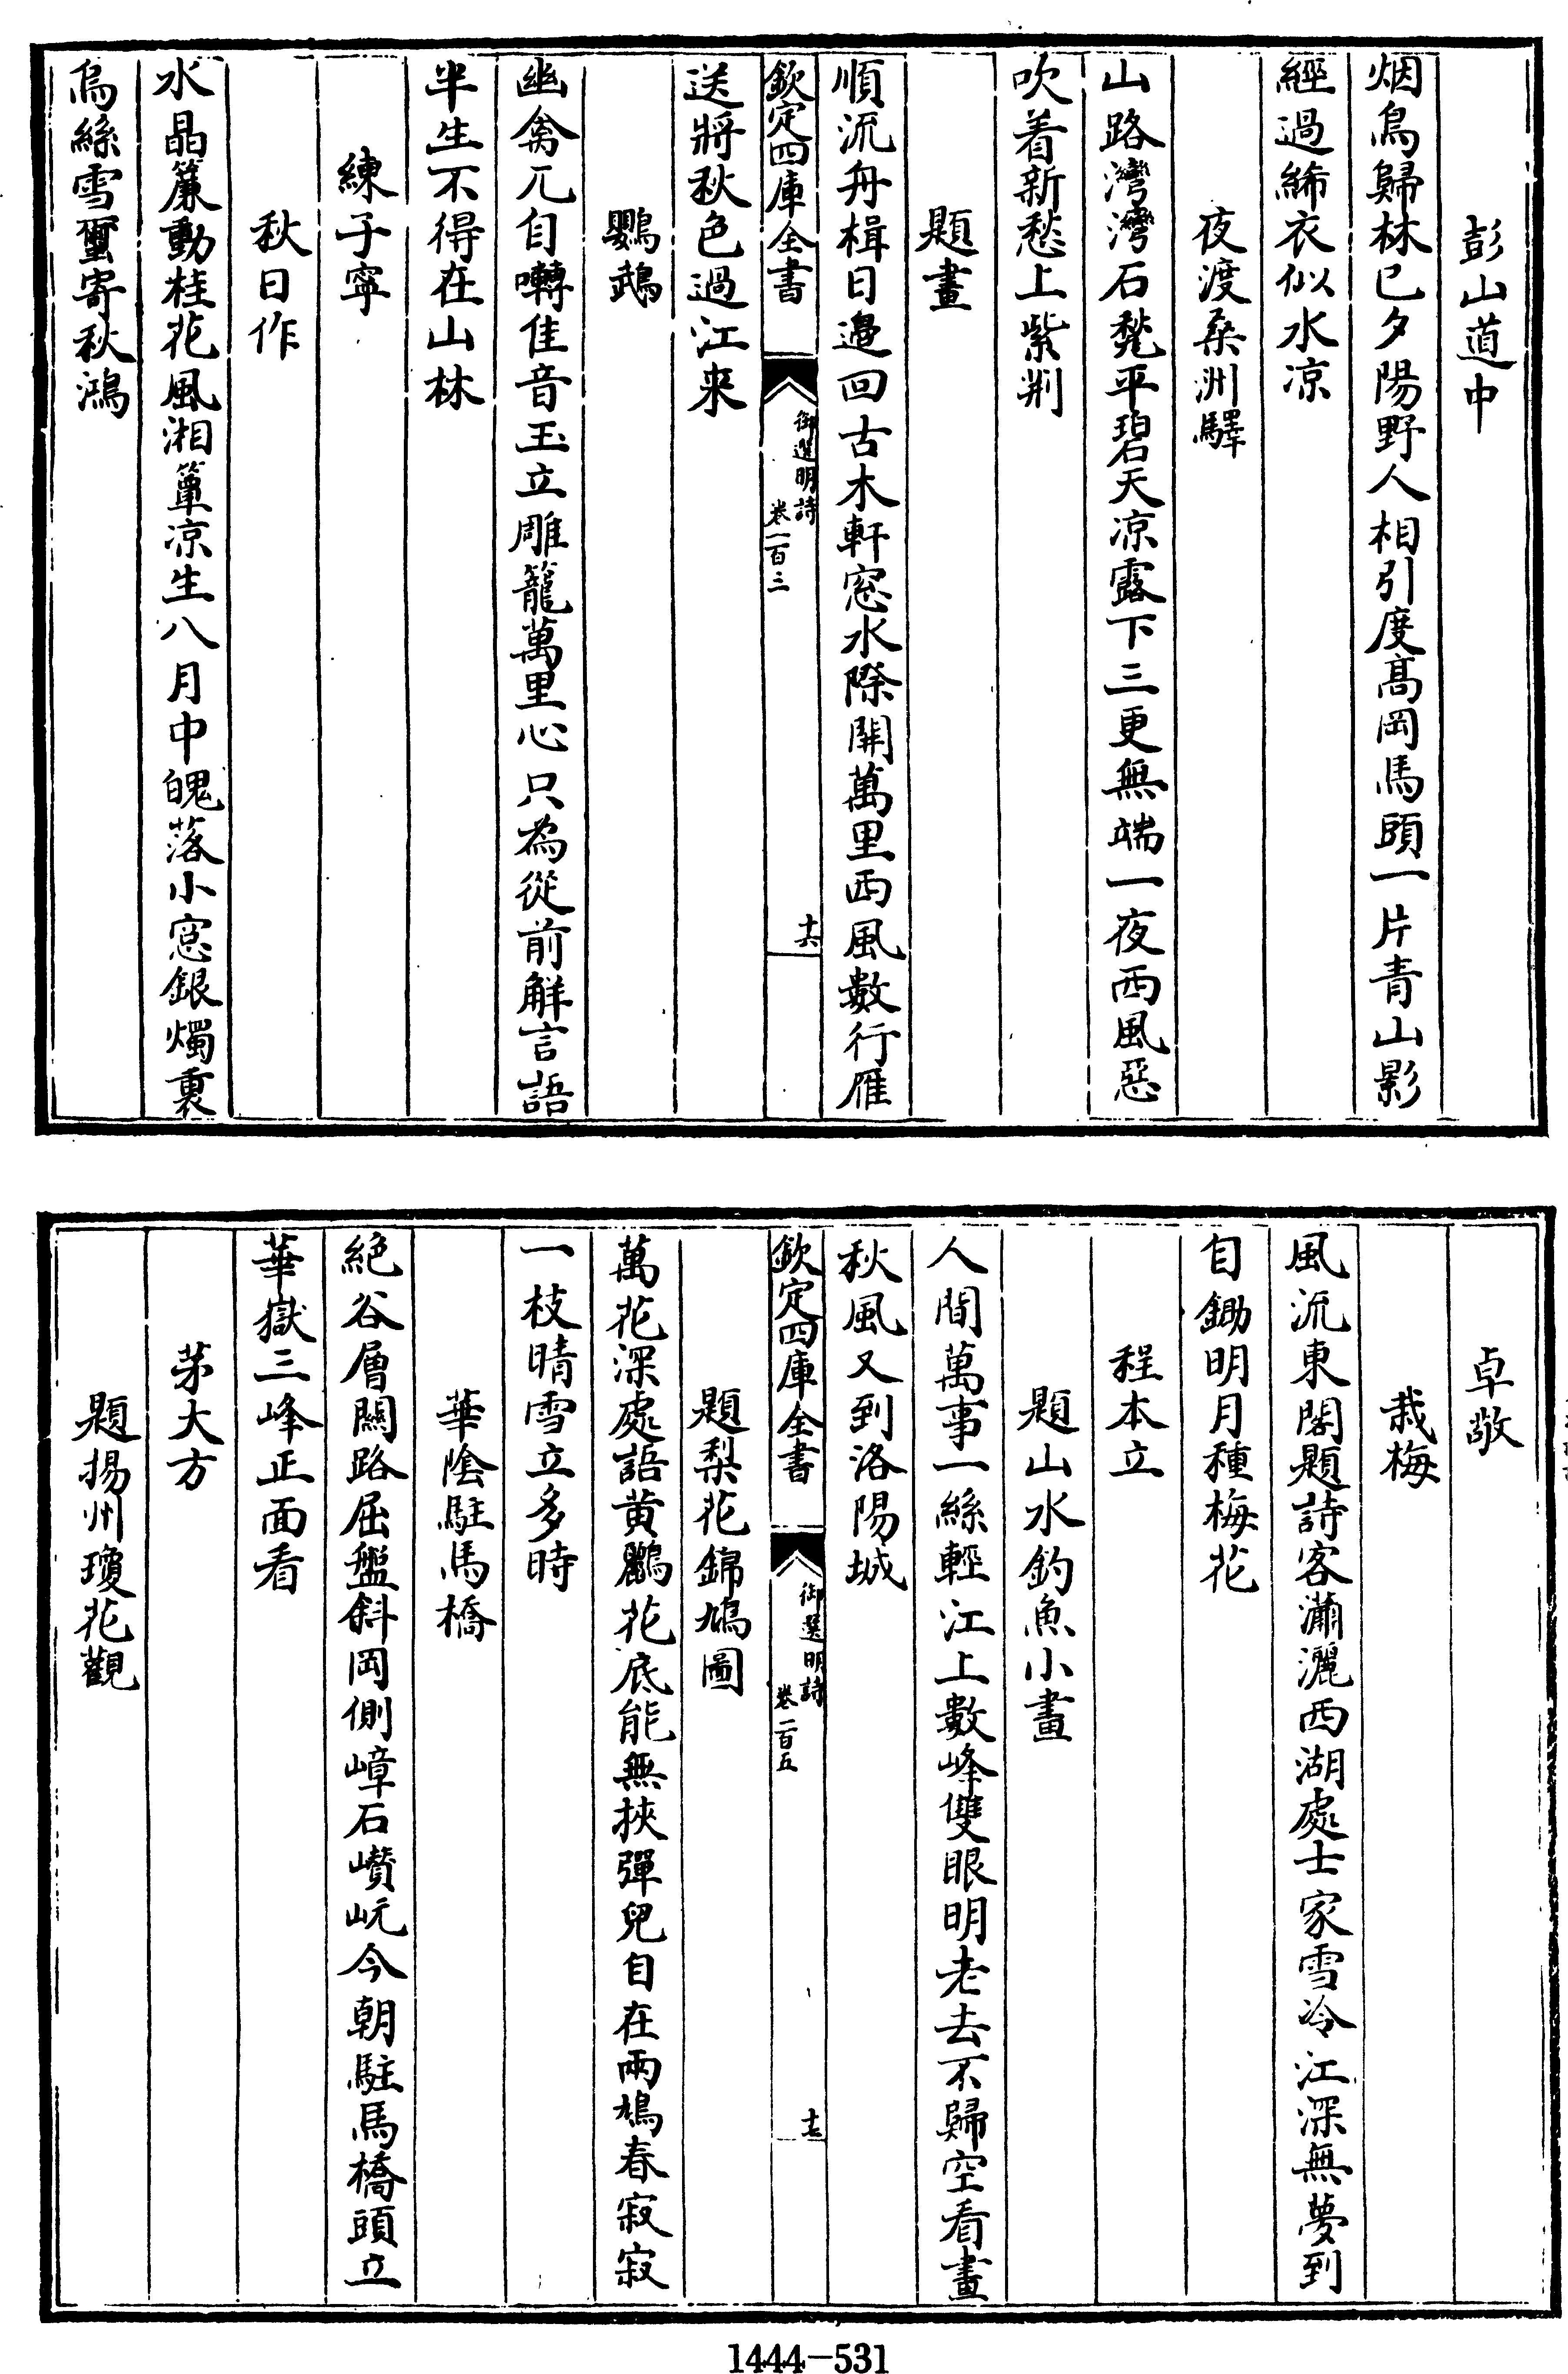 彭山道中
烟鳥歸林已夕陽野人相引度髙岡馬頭一片青山影
經過絺衣似水凉
夜渡桑洲驛
山路灣灣石甃平碧天凉露下三更無端一夜西風惡
吹着新愁上紫荆
題畫
順流舟楫日邉回古木軒窓水際開萬里西風數行雁
欽定四庫全書
御選明詩
卷一百三
十六
送將秋色過江来
鸚鵡
幽禽兀自囀佳音玉立雕籠萬里心只為從前解言語
半生不得在山林
練子寧
秋日作
水晶簾動桂花風湘簟凉生八月中魄落小窓銀燭裏
烏絲雪璽寄秋鴻
卓敬
栽梅
風流東閣題詩客瀟灑西湖處士家雪冷江深無夢到
自鋤明月種梅花
程本立
題山水釣魚小畫
人間萬事一絲輕江上數峰雙眼明老去不歸空看畫
秋風又到洛陽城
欽定四庫全書
御選明詩
卷一百五
十七
題梨花錦鳩圖
萬花深處語黄鸝花底能無挾彈兒自在兩鳩春寂寂
一枝晴雪立多時
華陰駐馬橋
絕谷層關路屈盤斜岡側嶂石巑岏今朝駐馬橋頭立
華嶽三峰正面看
茅大方
題揚州瓊花觀
1444-531